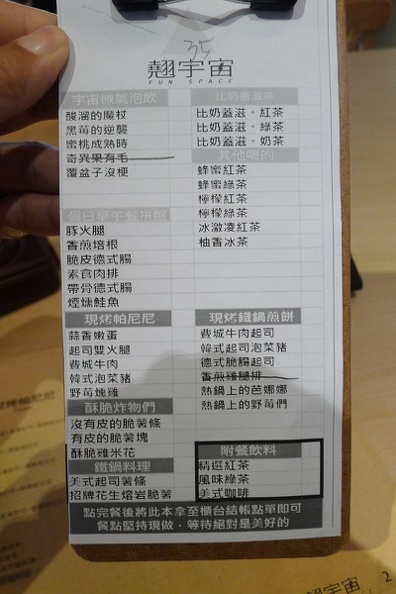 35
翹宇宙
FUN SPACE
宇宙微氣泡飲
酸溜的魔杖
黑莓的逆襲
蜜桃成熟時
奇異果有毛
覆盆子沒梗
假日早午餐拼盤
豚火腿
香煎培根
脆皮德式腸
素食肉排
帶骨德式腸
煙燻鮭魚
現烤帕尼尼
蒜香嫩蛋
起司雙火腿
費城牛肉
韓式泡菜豬
野莓燻雞
酥脆炸物們
沒有皮的脆薯條
有皮的脆薯塊
酥脆雞米花
鐵鍋料理
美式起司薯條
招牌花生熔岩脆薯
比奶蓋滋茶
比奶蓋滋。紅茶
比奶蓋滋。綠茶
比奶蓋滋。奶茶
其他喝的
蜂蜜紅茶
蜂蜜綠茶
檸檬紅茶
檸檬綠茶
冰激凌紅茶
柚香冰茶
現烤鐵鍋煎餅
費城牛肉起司
韓式起司泡菜豬
德式脆腸起司
香煎雞腿排
熱鍋上的芭娜娜
熱鍋上的野莓們
附餐飲料
精選紅茶
風味綠茶
美式咖啡
點完餐後將此本拿至櫃台結帳點單即可
餐點堅持現做，等待絕對是美好的
翹宇宙
2